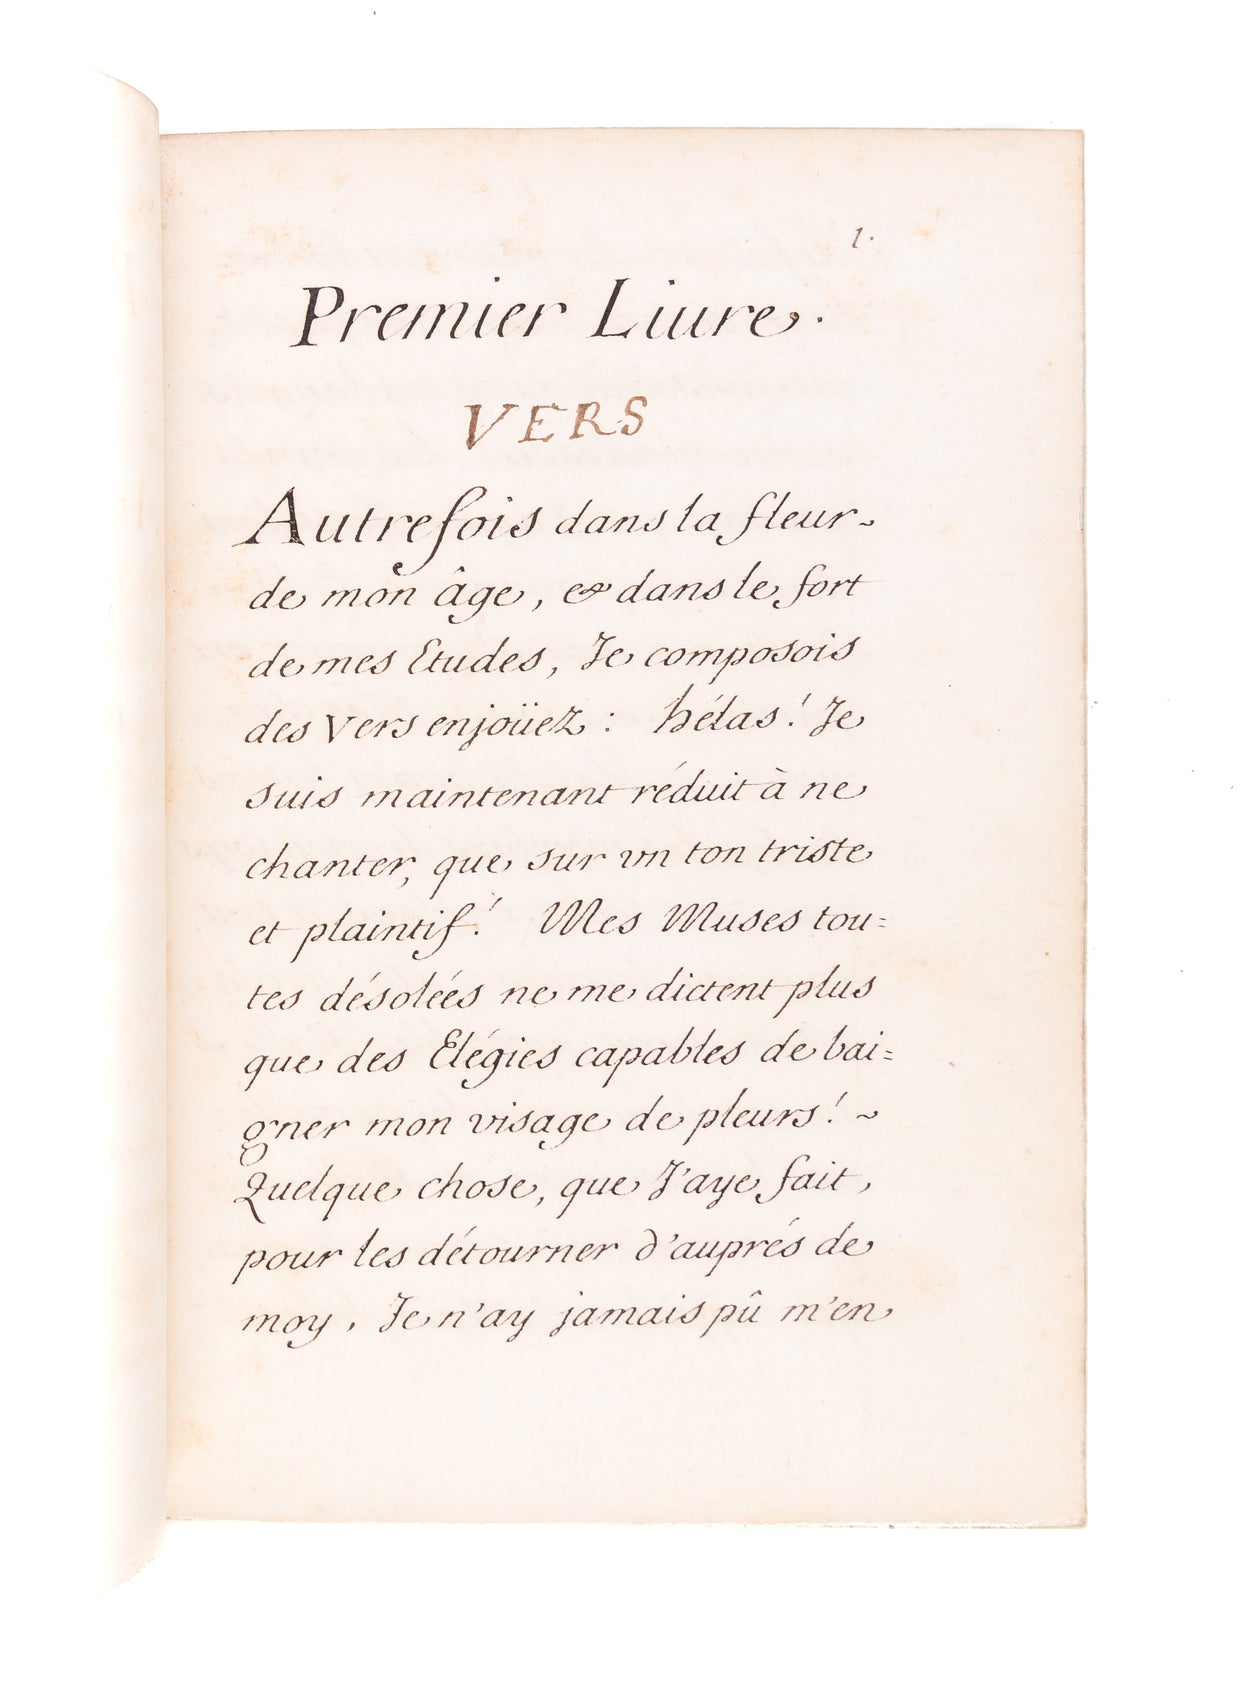 1.
Premier Liure.
VERS
Autrefois dans la fleur~
de mon âge, & dans le fort
de mes Etudes, Je composois
des Vers enjoüez : hélas! Je
suis maintenant réduit à ne
chanter, que sur vn ton triste
et plaintif! Mes Muses tou=
tes désolées ne me dictent plus
que des Elégies capables de bai=
gner mon visage de pleurs! ~
Quelque chose, que J'aye fait,
pour les détourner d'auprés de
moy, Je n'ay jamais pû m'en